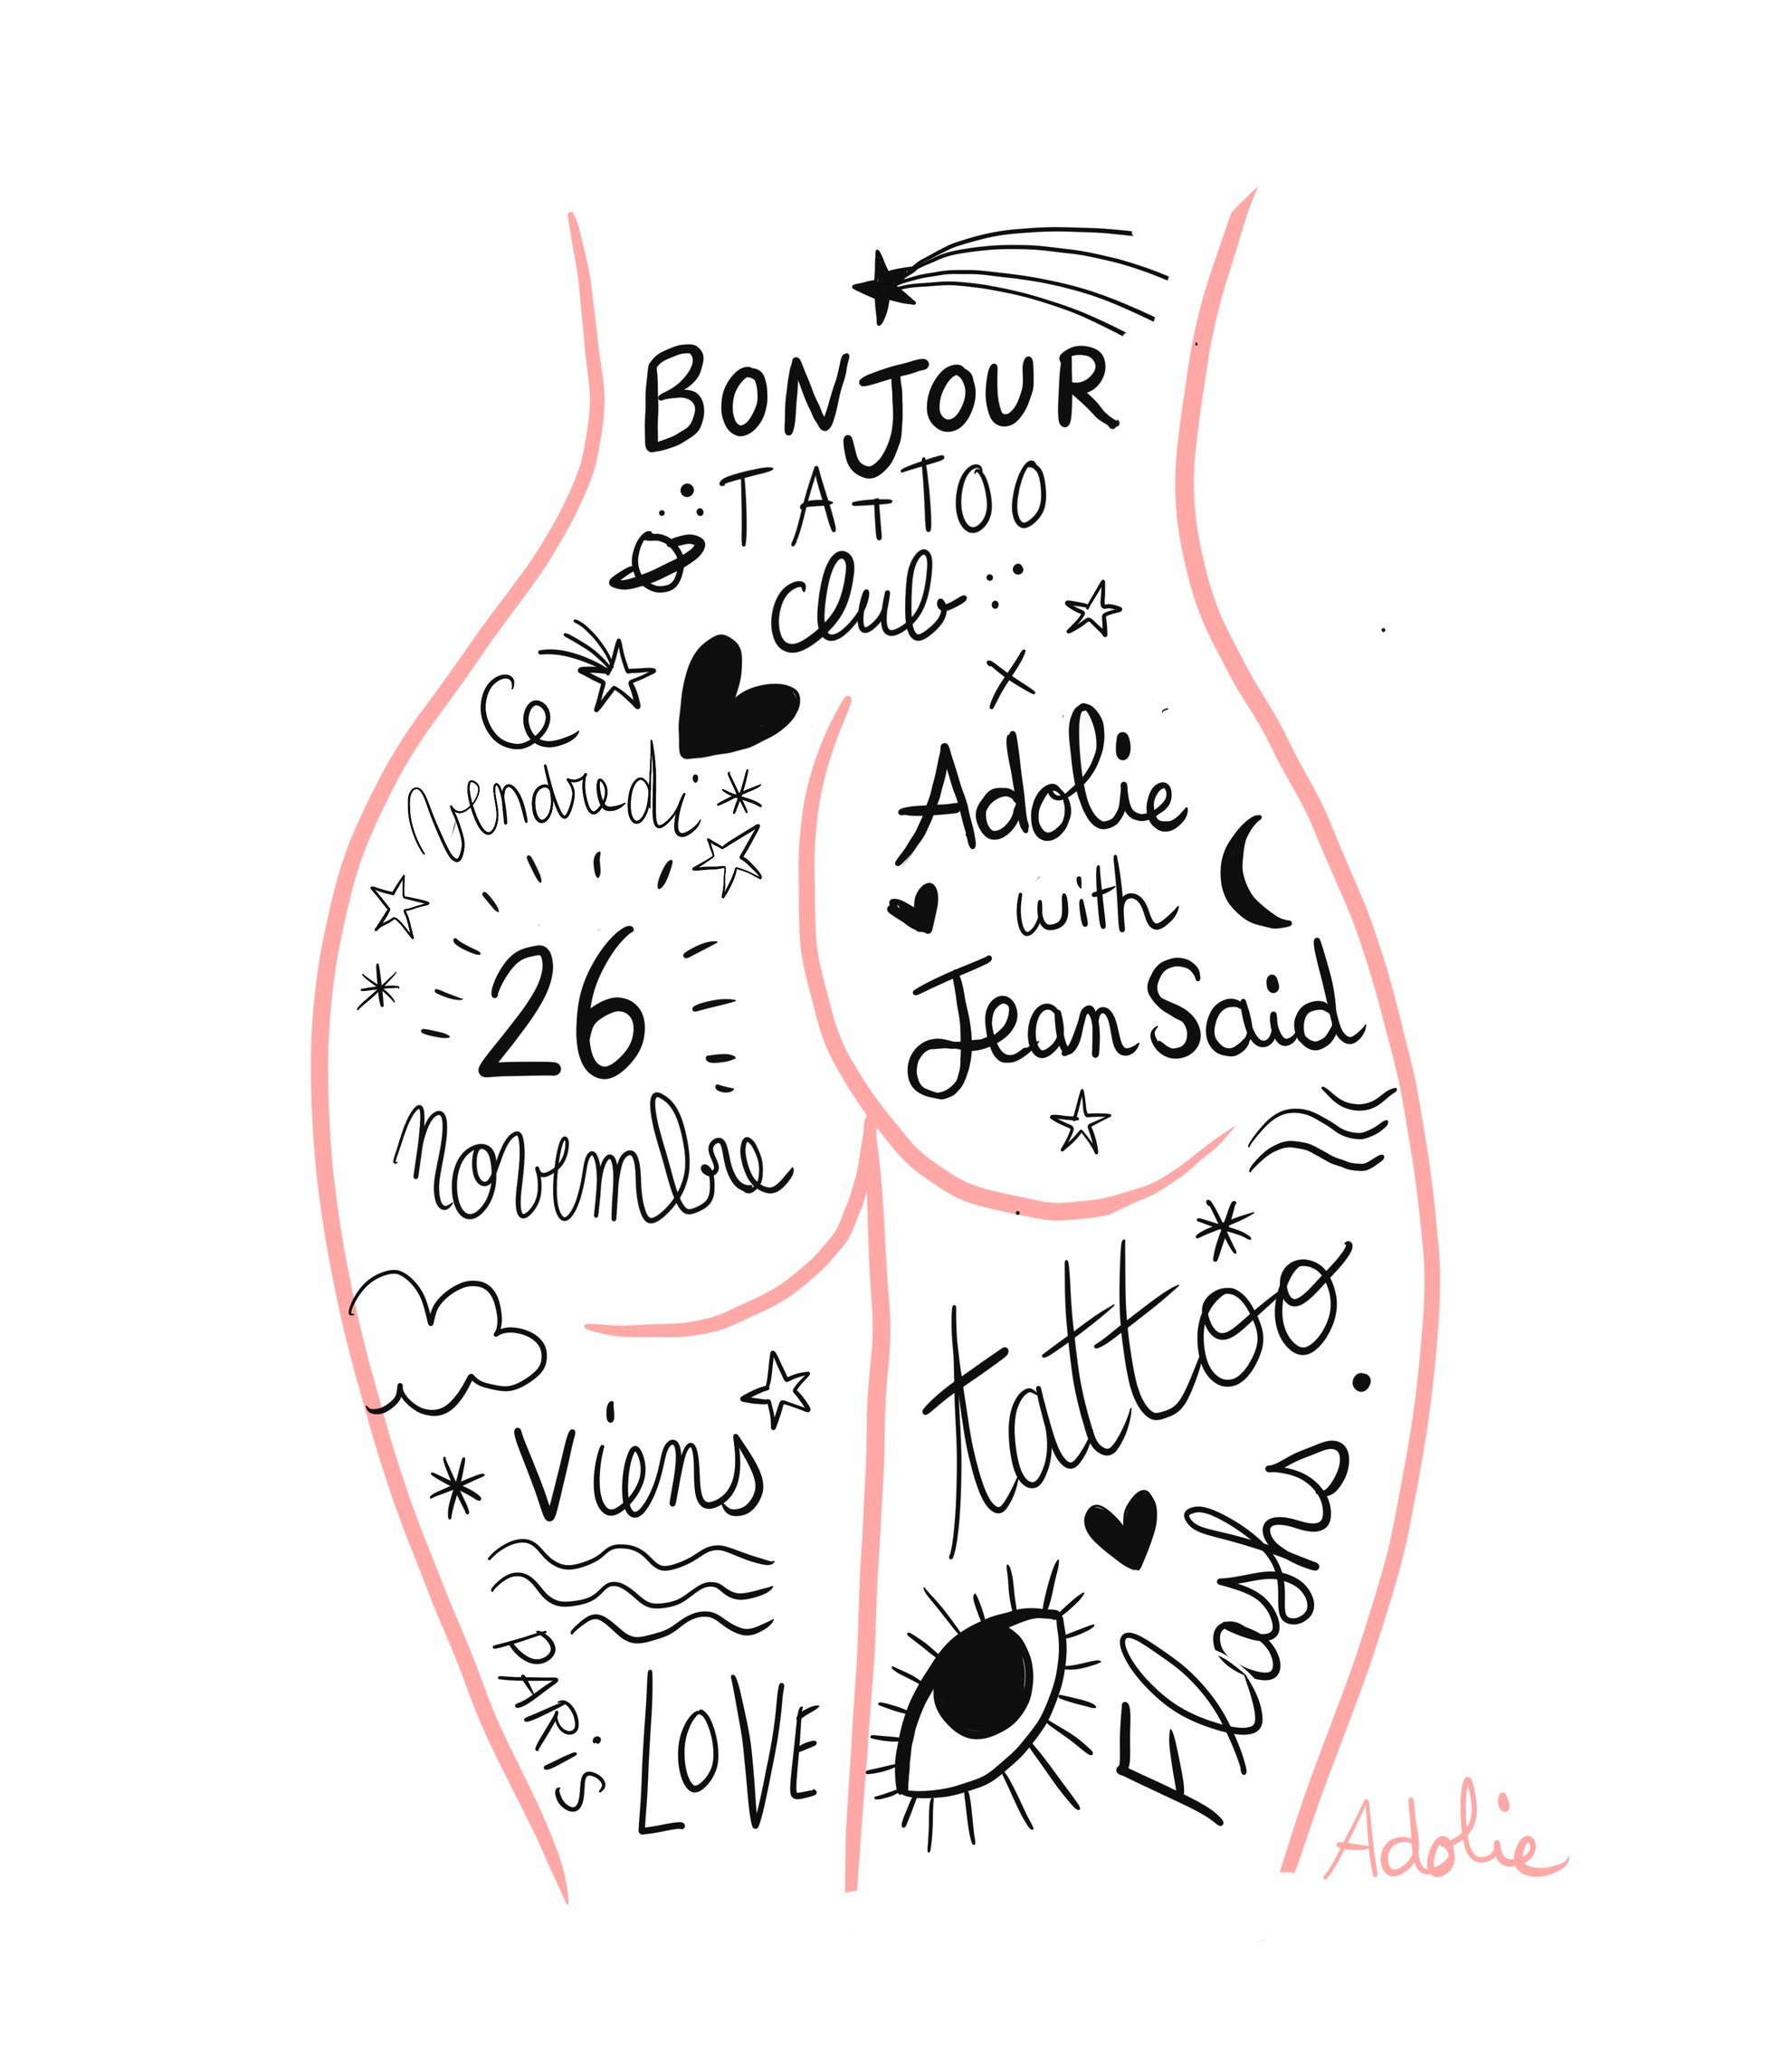 BONJOUR
TATTOO
club
Ce
Vendredi
26
novembre
Adolie
with
Jean Said
Viens
PARIS
LOVE
tattoo
Flashs
Adolie